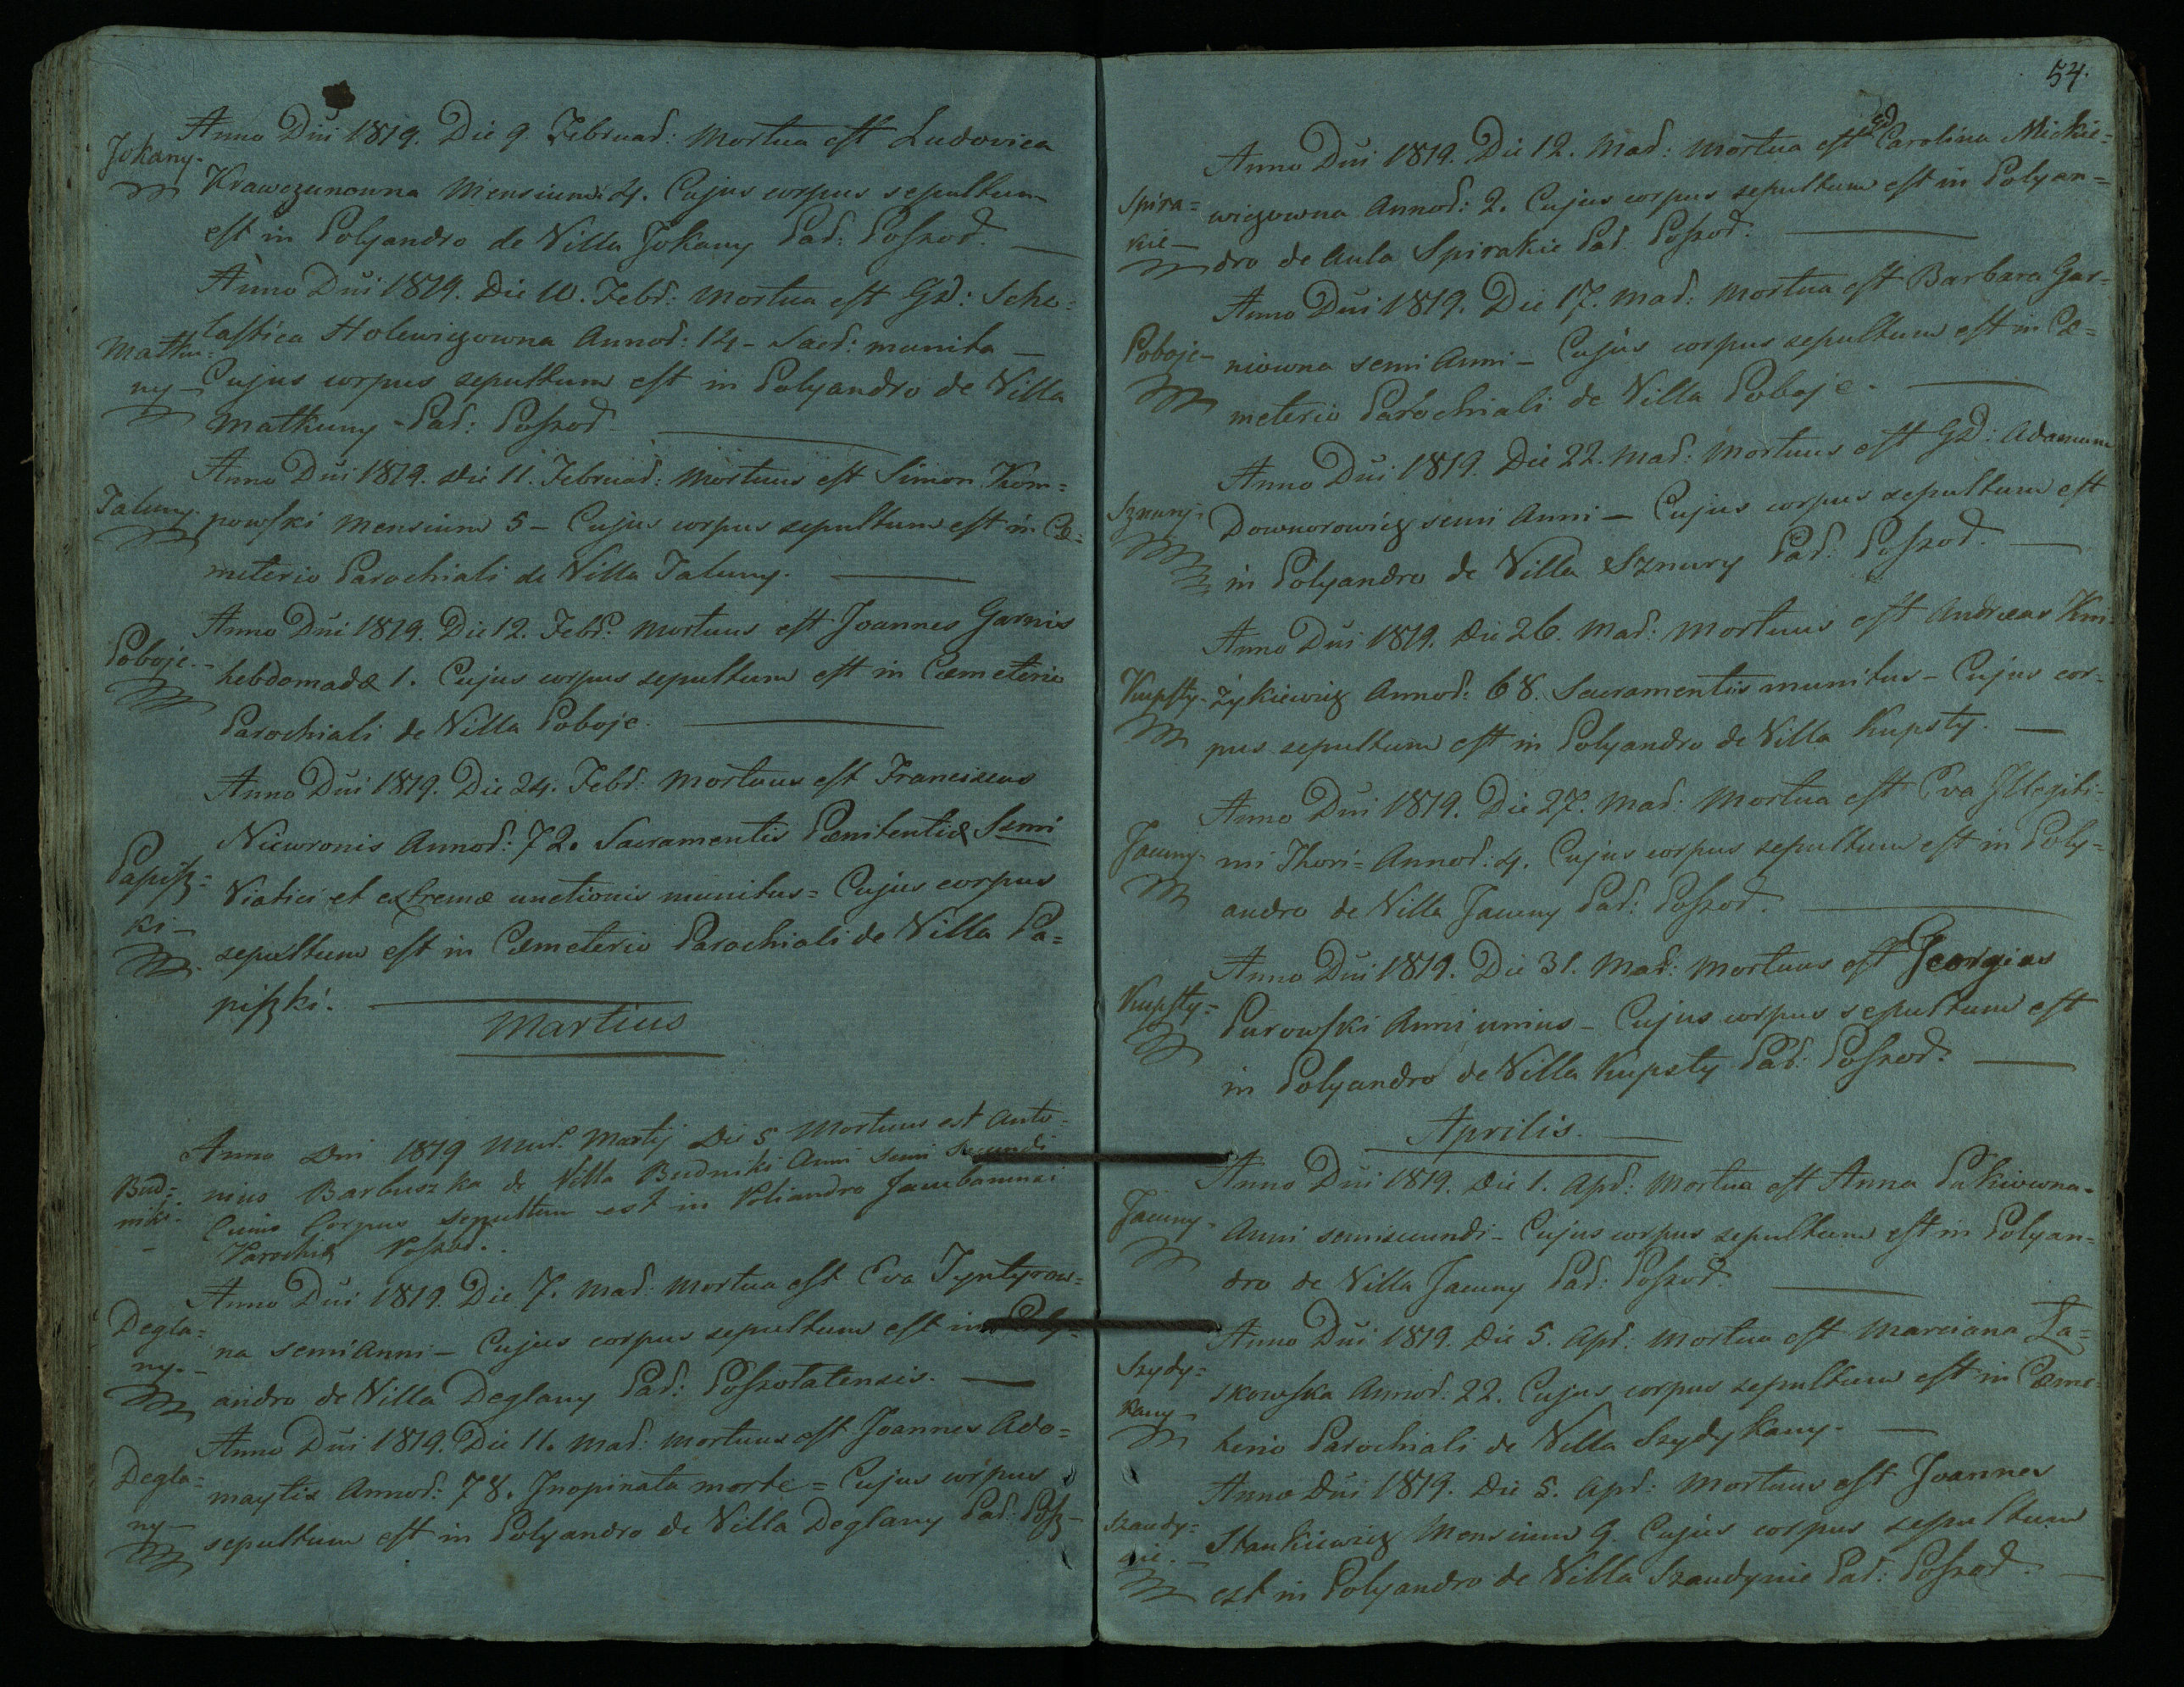 Anno Dni 1819. Die 9. Februar: Mortua est Ludovica
Jokany.
Krawczunowna Mensium 4. Cujus corpus sepultum
est in Polyandro de Villa Jokany Par: Poszod.
Anno Dni 1819. Die 10. Febr: Mortua est GD: Scho=
lastica Holewizowna Annor: 14 – Sacr: munita –
Matku=
ny – Cujus corpus sepultum est in Polyandro de Villa
Matkuny – Par: Poszod.
Anno Dni 1819. Die 11. Februar: Mortuus est Simon Kom=
Taluny. powski Mensium 5 – Cujus corpus sepultum est in Cæ=
meterio Parochiali de Villa Taluny.
Anno Dni 1819. Die 12. Febr: Mortuus est Joannes Garnis
Poboje. – hebdomadæ 1. Cujus corpus sepultum est in Cæmeterio
Parochiali de Villa Poboje.
Anno Dni 1819. Die 24. Febr: Mortuus est Franciscus
Niewronis Annor: 72. Sacramentis Pœnitentiæ Ssmi
Papisz=
ki –
Viatici et extremæ unctionis munitus = Cujus corpus
sepultum est in Cæmeterio Parochiali de Villa Pa=
piszki.
Martius
Anno Dni 1819 Martij Die 5 Mortuus est Anto-
Bud=
niki. nius Barbuszka de Villa Budniki Anni semi secundi
Cuius Corpus sepultum est in Poliandro
Parochiæ Poszod.
Anno Dni 1819. Die 7. Mar: Mortua est Eva Tyntyrow=
Degla=
ny. – na semi Anni – Cujus corpus sepultum est in Poly=
andro de Villa Deglany Par: Poszolatensis.
Anno Dni 1819. Die 11. Mar: Mortuus est Joannes Ado=
Degla=
ny – maytis Annor: 78. Inopinata morte = Cujus corpus
sepultum est in Polyandro de Villa Deglany Par: Posz –
54.
Anno Dni 1819. Die 12. Mar: Mortua est GD Carolina Mickie=
Spira=
kie – wizowna Annor: 2. Cujus corpus sepultum est in Polyan=
dro de Aula Spirakie Par: Poszod.
Anno Dni 1819. Die 17. Mar: Mortua est Barbara Gar=
Poboje – niowna semi Anni – Cujus corpus sepultum est in Cæ=
meterio Parochiali de Villa Poboje.
Anno Dni 1819. Die 22. Mar: Mortuus est GD: Adamum
Sznury. Downorowicz semi Anni – Cujus corpus sepultum est
in Polyandro de Villa Sznury Par: Poszod.
Anno Dni 1819. Die 26. Mar: Mortuus est Andreas Kni=
Kupsty – żykiewicz Annor: 68. Sacramentis munitus – Cujus cor=
pus sepultum est in Polyandro de Villa Kupsty.
Anno Dni 1819. Die 27. Mar: Mortua est Eva Illegiti=
Jacuny. mi Thori = Annor: 4. Cujus corpus sepultum est in Poly=
andro de Villa Jacuny Par: Poszod.
Anno Dni 1819. Die 31. Mar: Mortuus est Georgius
Kupsty = Purowski Anni unius – Cujus corpus sepultum est
in Polyandro de Villa Kupsty Par: Poszod.
Aprilis.
Anno Dni 1819. Die 1. Apr: Mortua est Anna Pukiowna.
Jacuny. Anni semisecundi – Cujus corpus sepultum est in Polyan=
dro de Villa Jacuny Par: Poszod.
Anno Dni 1819. Die 5. Apr: Mortua est Marciana La=
Szydy=
kany – skowska Annor: 22. Cujus corpus sepultum est in Cæme=
terio Parochiali de Villa Szydykany.
Anno Dni 1819. Die 5. Apr: Mortuus est Joannes
Szaudy=
nie. – Stankiewicz Mensium 9. Cujus corpus sepultum
est in Polyandro de Villa Szaudynie Par: Poszod.